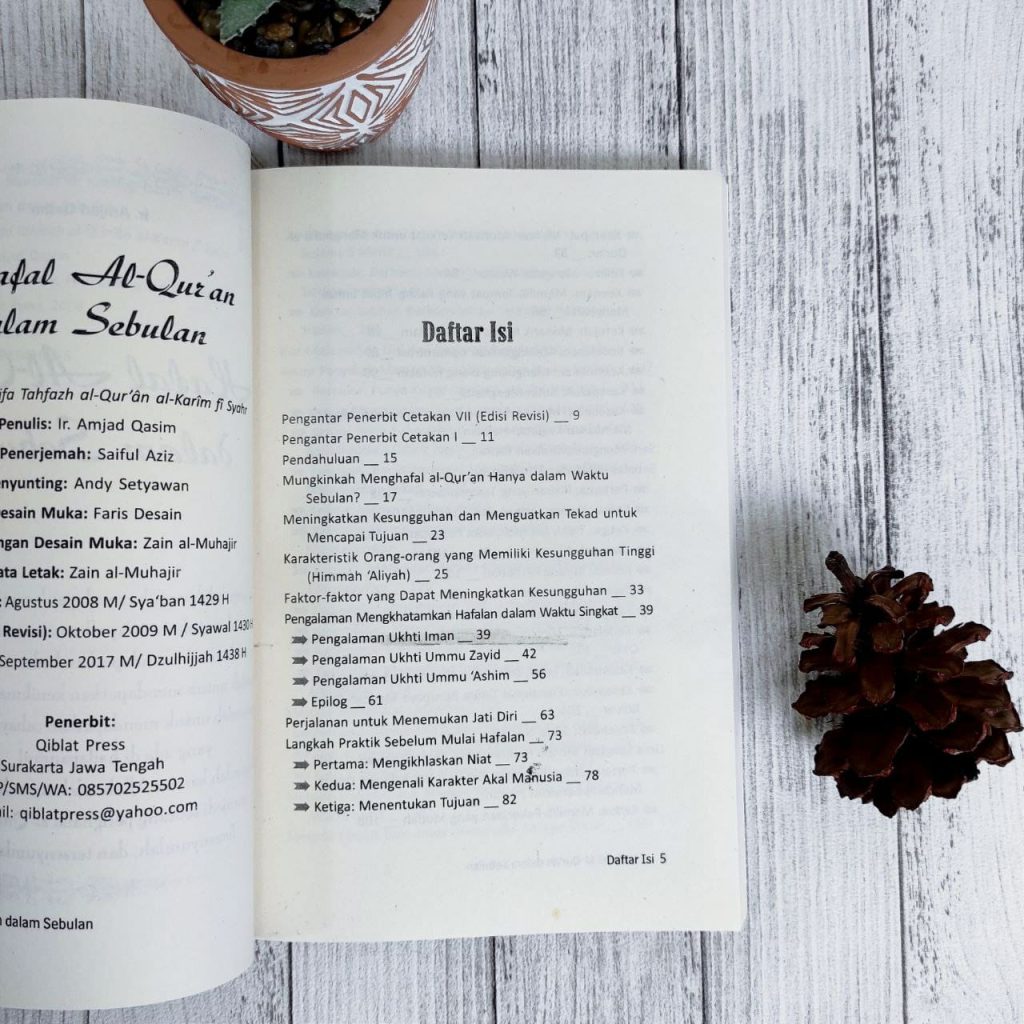 Al-Qur'an
Sebulan
Tahfazh al-Qur'ân al-Karîm fi Syahr
Penulis: Ir. Amjad Qasim
Penerjemah: Saiful Aziz
Andy Setyawan
Desain Muka: Faris Desain
Desain Muka: Zain al-Muhajir
Letak: Zain al-Muhajir
Agustus 2008 M/ Sya'ban 1429 H
Revisi): Oktober 2009 M / Syawal 1430 H
September 2017 M/ Dzulhijjah 1438 H
Penerbit:
Qiblat Press
Surakarta Jawa Tengah
/SMS/WA: 085702525502
qiblatpress@yahoo.com
dalam Sebulan
Daftar Isi
Pengantar Penerbit Cetakan VII (Edisi Revisi) __ 9
Pengantar Penerbit Cetakan I __ 11
Pendahuluan __ 15
Mungkinkah Menghafal al-Qur'an Hanya dalam Waktu
Sebulan? __ 17
Meningkatkan Kesungguhan dan Menguatkan Tekad untuk
Mencapai Tujuan __ 23
Karakteristik Orang-orang yang Memiliki Kesungguhan Tinggi
(Himmah 'Aliyah) __ 25
Faktor-faktor yang Dapat Meningkatkan Kesungguhan __ 33
Pengalaman Mengkhatamkan Hafalan dalam Waktu Singkat __ 39
Pengalaman Ukhti Iman __ 39
Pengalaman Ukhti Ummu Zayid __ 42
Pengalaman Ukhti Ummu 'Ashim __ 56
Epilog __ 61
Perjalanan untuk Menemukan Jati Diri __ 63
Langkah Praktik Sebelum Mulai Hafalan __ 73
Pertama: Mengikhlaskan Niat __ 73
Kedua: Mengenali Karakter Akal Manusia __ 78
Ketiga: Menentukan Tujuan __ 82
Daftar Isi 5